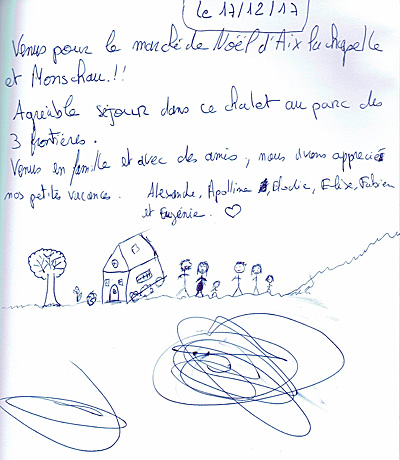 le 17/12/17
Venus pour le marché de Noël d'Aix la chapelle
et Monschau.!!
Agréable séjour dans ce chalet au parc des
3 frontières.
Venus en famille et avec des amis, nous avons apprécié
nos petites vacances. Alexandre, Apolline, Elodie, Elise, Fabien
et Eugénie. ♡